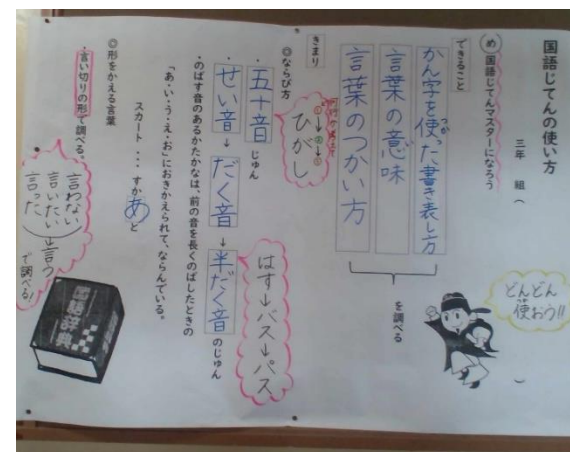 国語じてんの使い方
三年　組（　　　）
め 国語じてんマスターになろう
どんどん
使おう!!
できること
かん字を使った書き表し方
つか
言葉の意味
言葉のつかい方
を調べる
きまり
①→②→③
ひがし
◎ならび方
・五十音じゅん
・せい音→だく音→半だく音のじゅん
はす→バス→パス
・のばす音のあるかたかなは、前の音を長くのばしたときの
「あ・い・う・え・お」におきかえられて、ならんでいる。
スカート・・・すかあと
◎形をかえる言葉
・言い切りの形で調べる。
言わない
言いたい→言う
言った
で調べる!
国語辞典